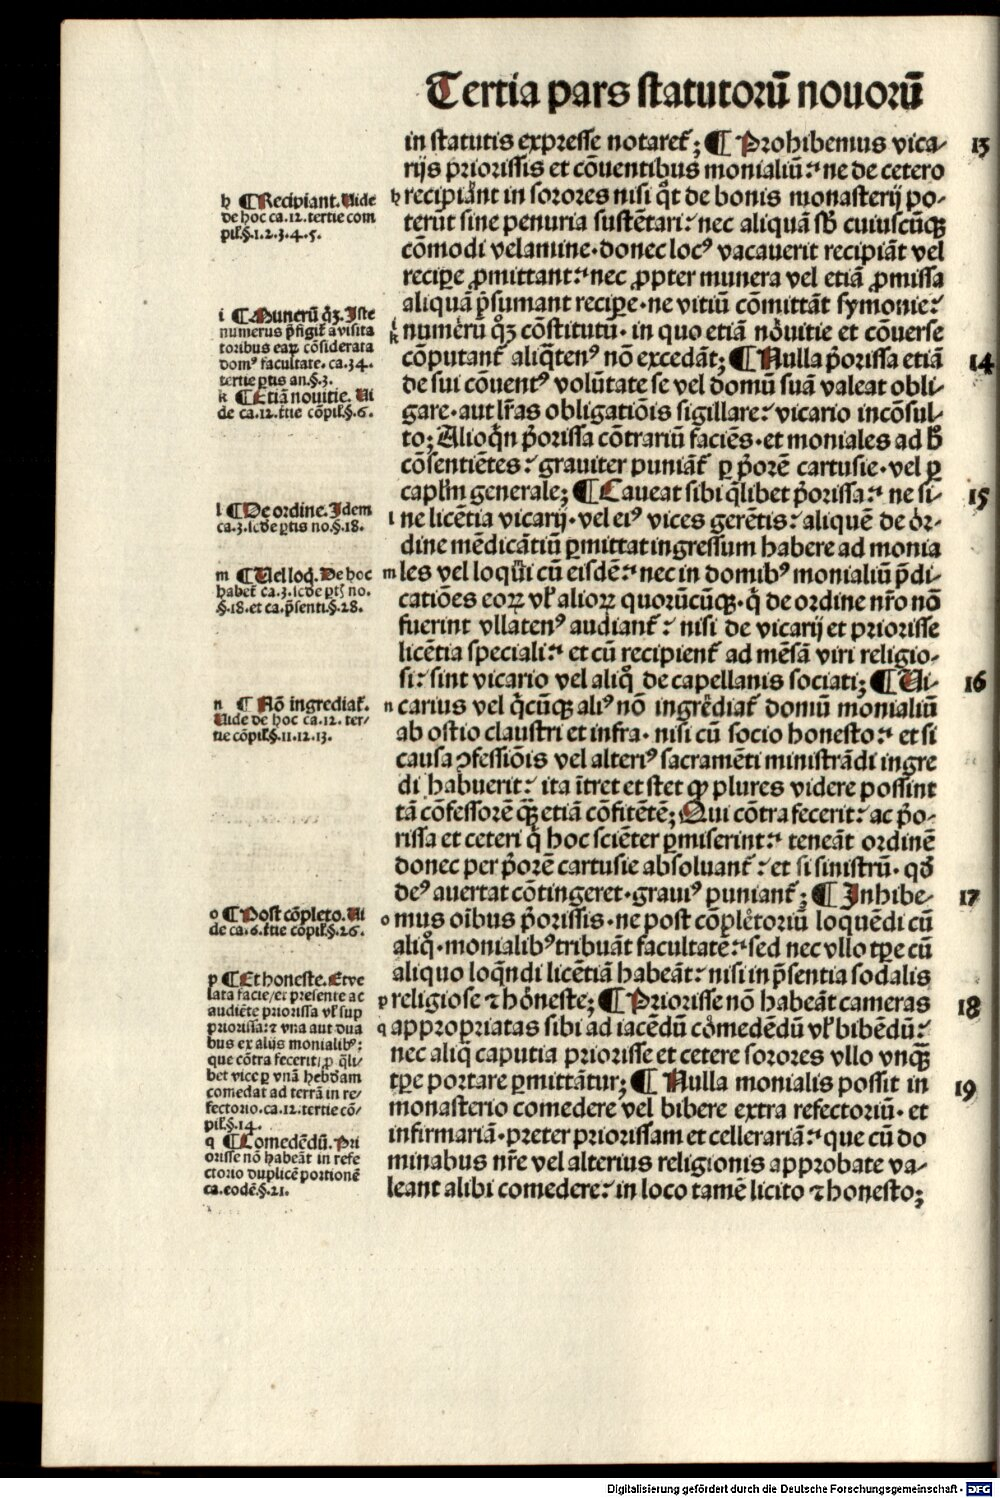 Tertia pars statutorū nouorū
in statutis expresse notareť; ¶ Prohibemus vica- 13
rijs priorissis et cōuentibus monialiū: ne de cetero
h recipiāt in sorores nisi q̄t de bonis monasterij po-
terūt sine penuria sustētari: nec aliquā sb̄ cuiuscūqꝫ
cōmodi velamine· donec locꝰ vacauerit recipiāt vel
recipe ꝓmittant: nec ꝓpter munera vel etiā ꝓmissa
aliquā p̄sumant recipe· ne vitiū cōmittāt symonie:
i k numerū qꝫ cōstitutū· in quo etiā nouitie et cōuerse
cōputanť aliq̄tenꝰ nō excedāt; ¶ Nulla p̄orissa etiā 14
de sui cōuentꝰ volūtate se vel domū suā valeat obli-
gare· aut lr̄as obligatiōis sigillare: vicario incōsul-
to; Alioq̄n p̄orissa cōtrariū faciēs· et moniales ad h̄
cōsentiētes: grauiter puniāť ꝑ p̄orē cartusie· vel ꝑ
capl'm generale; ¶ Caueat sibi q̄libet p̄orissa: ne si- 15
l ne licētia vicarij· vel eiꝰ vices gerētis: aliquē de or-
dine mēdicātiū ꝑmittat ingressum habere ad monia
m les vel loqui cū eisdē: nec in domibꝰ monialiū p̄di-
catiōes eoꝝ vľ alioꝝ quorūcūqꝫ· q̄ de ordine nr̄o nō
fuerint vllatenꝰ audianť: nisi de vicarij et priorisse
licētia speciali: et cū recipienť ad mēsā viri religio-
si: sint vicario vel aliq̄ de capellanis sociati; ¶ Ui- 16
n carius vel q̄cūqꝫ aliꝰ nō ingrediať domū monialiū
ab ostio claustri et infra· nisi cū socio honesto: et si
causa ꝯfessiōis vel alteriꝰ sacramēti ministrādi ingre
di habuerit: ita ītret et stet ꝙ plures videre possint
tā cōfessorē qꝫ etiā cōfitētē; Qui cōtra fecerit: ac p̄o-
rissa et ceteri q̄ hoc sciēter ꝑmiserint: teneāt ordinē
donec per p̄orē cartusie absoluanť: et si sinistrū· qd̄
deꝰ auertat cōtingeret· grauiꝰ punianť; ¶ Inhibe- 17
o mus oībus p̄orissis· ne post cōpletoriū loquēdi cū
aliq̄· monialibꝰ tribuāt facultatē: sed nec vllo tꝑe cū
aliquo loq̄ndi licētiā habeāt: nisi in p̄sentia sodalis
p religiose ⁊ honeste; ¶ Priorisse nō habeāt cameras 18
q appropriatas sibi ad iacēdū comedēdū vľ bibēdū:
nec aliq̄ caputia priorisse et cetere sorores vllo vnqꝫ
tꝑe portare ꝑmittātur; ¶ Nulla monialis possit in 19
monasterio comedere vel bibere extra refectoriū· et
infirmariā· preter priorissam et cellerariā: que cū do
minabus nr̄e vel alterius religionis approbate va-
leant alibi comedere: in loco tamē licito ⁊ honesto;
h ¶ Recipiant. Uide
de hoc ca.12. tertie com
pil'.§.1.2.3.4.5.
i ¶ Numerū qꝫ. Iste
numerus p̄figiť a visita
toribus eaꝝ cōsiderata
domꝰ facultate. ca.34.
tertie ꝑtis an.§.3.
k ¶ Etiā nouitie. Ui
de ca.12. ťtie cōpil'.§.6.
l ¶ De ordine. Idem
ca.3. scd̄e ꝑtis no.§.18.
m ¶ Uel loq̄. De hoc
habeť ca.3. scd̄e ꝑtꝭ no.
§.18. et ca. p̄senti.§.28.
n ¶ Nō ingrediať.
Uide de hoc ca.12. ter-
tie cōpil'.§.11.12.13.
o ¶ Post cōpleto. Ui
de ca.6. ťtie cōpil'.§.26.
p ¶ Et honeste. Et ve
lata facie/ et presente ac
audiēte priorissa vľ sup
priorissa: ⁊ vna aut dua
bus ex alijs monialibꝰ:
que cōtra fecerit/ ꝓ q̄li-
bet vice ꝑ vnā hebdam
comedat ad terrā in re-
fectorio. ca.12. tertie cō-
pil'.§.14.
q ¶ Comedēdū. Pri
orisse nō habeāt in refe
ctorio duplicē portionē
ca. eodē.§.21.
Digitalisierung gefördert durch die Deutsche Forschungsgemeinschaft - DFG